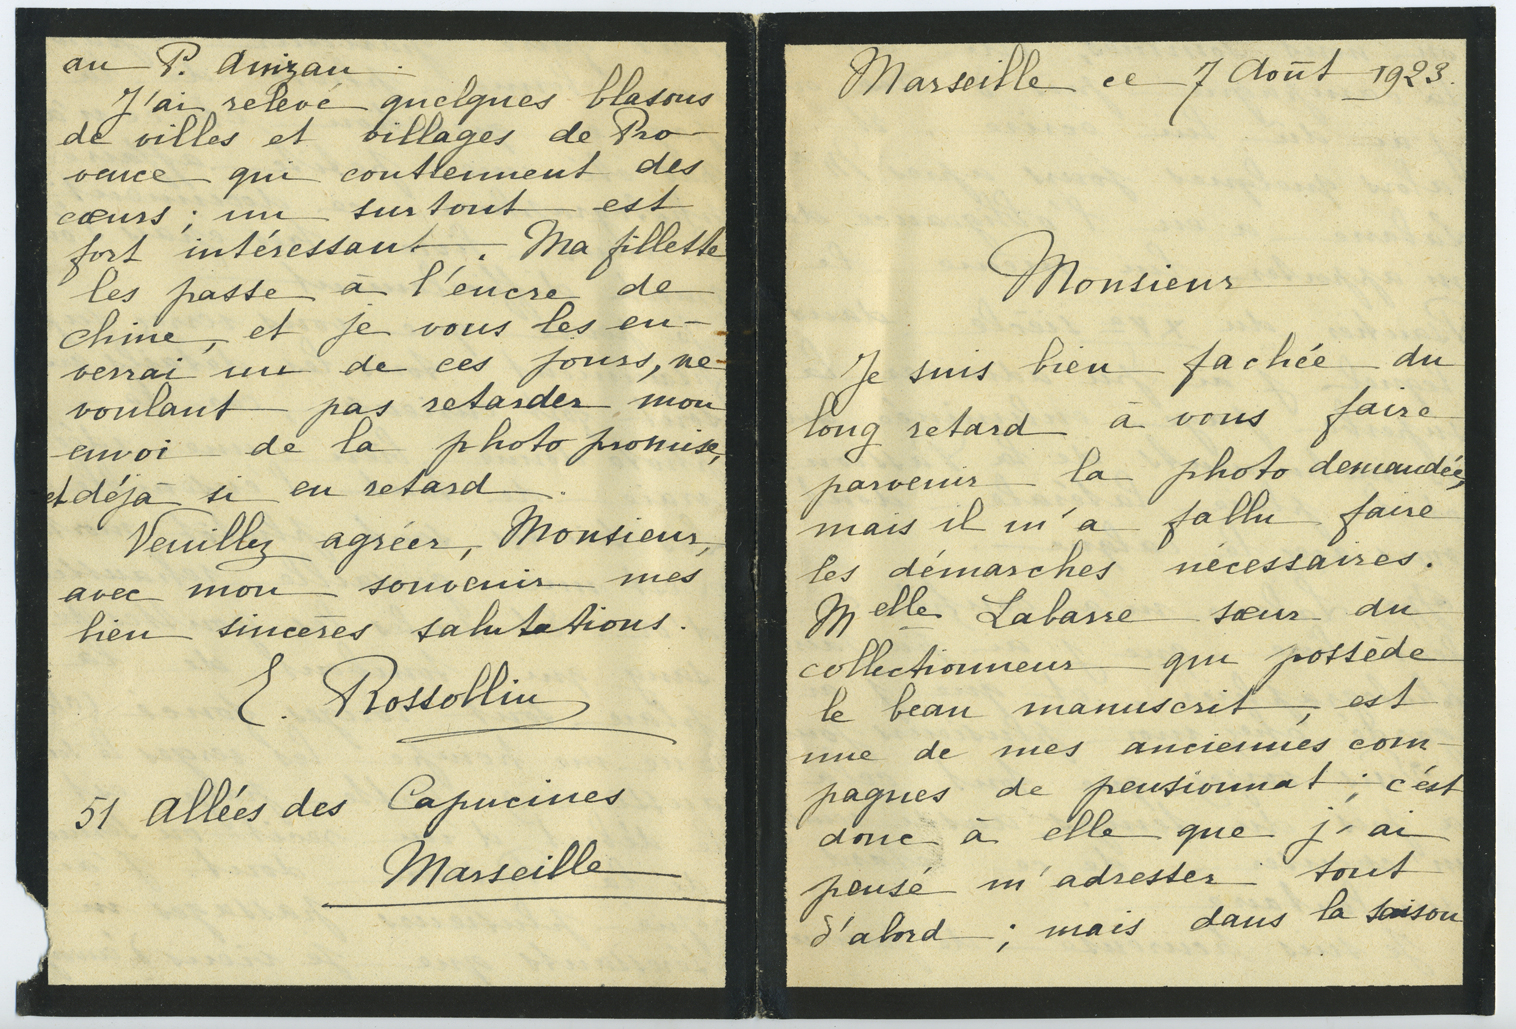 Marseille ce 7 Août 1923.
Monsieur
Je suis bien fachée du
long retard à vous faire
parvenir la photo demandée,
mais il m'a fallu faire
les démarches nécessaires.
Melle Labarre sœur du
collectionneur qui possède
le beau manuscrit, est
une de mes anciennes com-
pagnes de pensionnat ; c'est
donc à elle que j'ai
pensé m'adresser tout
d'abord ; mais dans la saison
au P. Anizan.
J'ai relevé quelques blasons
de villes et villages de Pro-
vence qui contiennent des
cœurs ; un surtout est
fort intéressant. Ma fillette
les passe à l'encre de
chine, et je vous les en-
verrai un de ces jours, ne
voulant pas retarder mon
envoi de la photo promise,
et déjà si en retard.
Veuillez agréer, Monsieur,
avec mon souvenir mes
bien sincères salutations.
E. Rossollin
51 Allées des Capucines
Marseille